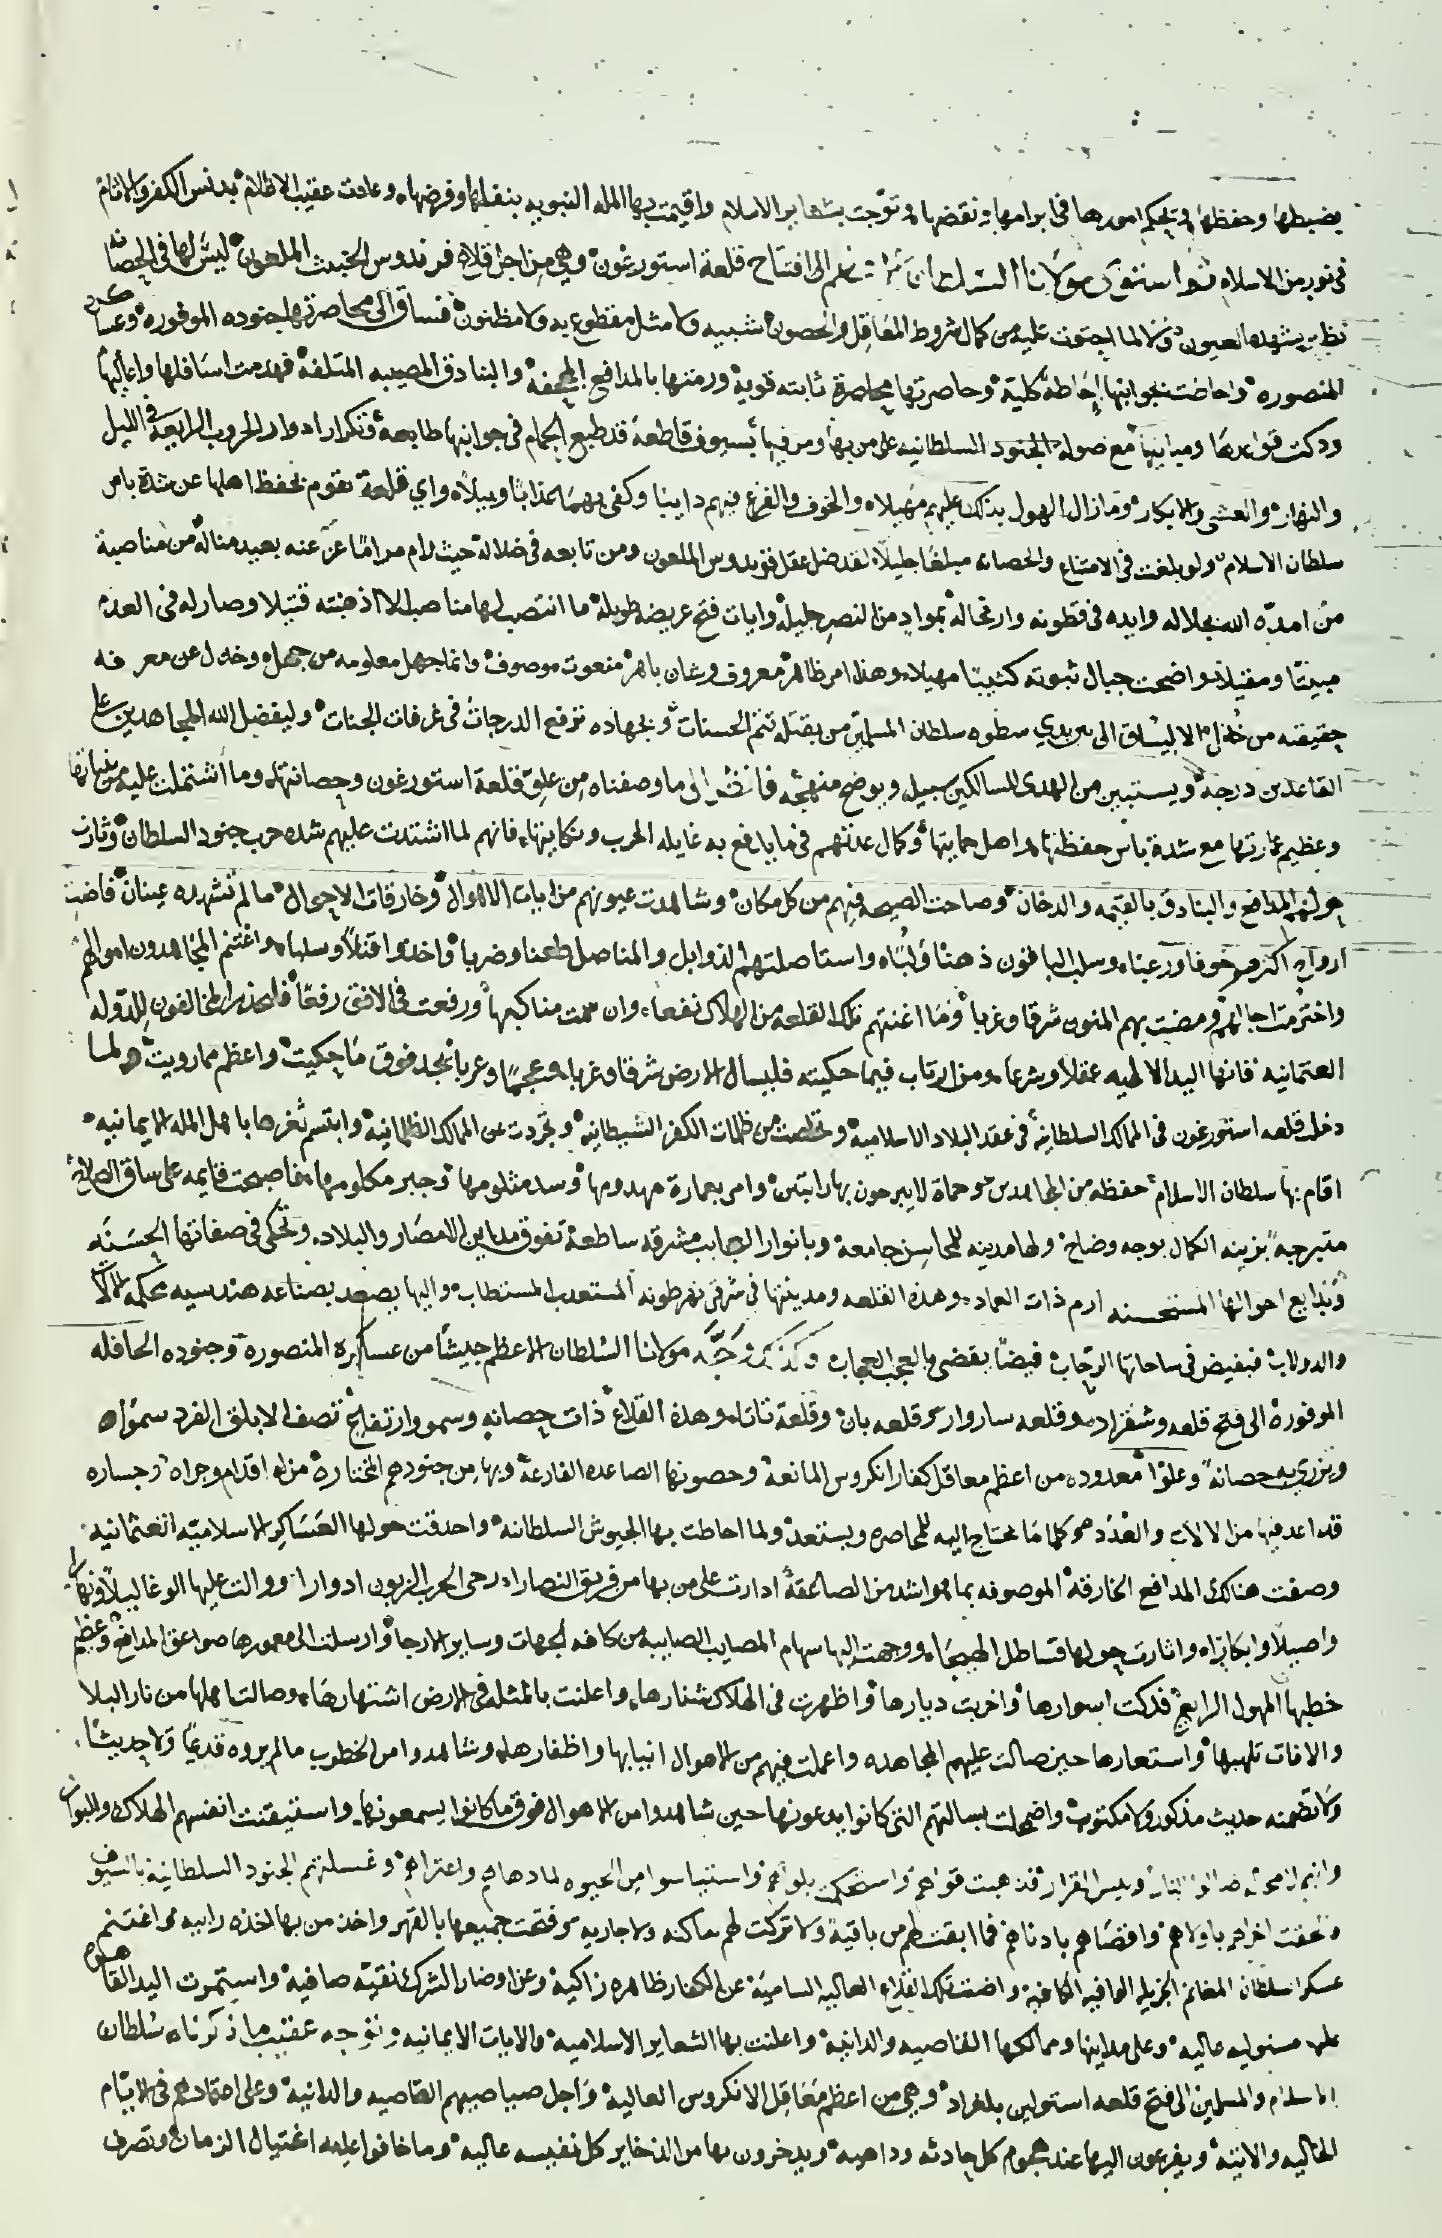 بضبطها وحفظها في تحكيم امورها في ابرامها ونقضها ثم توجت بشعاير الاسلام واقيمت بها الملة النبويه بنفلها وفرضها وعادت عقيب الاظلام بدنس الكفر والاثام
في نور من الاسلام ثم استنفر مولانا السلطان الى افتتاح قلعة استورغون وهي من اجل قلاع فرندوس الخبيث الملعون ليس لها في الحصانه
نظير يشهده العيون ولا لما احتوت عليه من كمال شروط المعاقل والحصون شبيه ولا مثل مقطوع به ولا مظنون فساق الى محاصرتها جنوده الموفوره وعساكره
المنصوره واحاطت بجوانبها احاطة كلية وحاصرتها محاصرة ثابته قوية ورمتها بالمدافع المجحفة والبنادق المصيبه المتلفة فهدمت اسافلها واعاليها
ودكت قواعدها ومبانيها مع صولة الجنود السلطانيه على من بها ومن فيها بسيوف قاطعة قد طبع الحمام في جوانبها طابعه وتكرار ادوار الحروب الرايعة في الليل
والنهار والعشي والابكار وما زال الهول بذلك عليهم مهيلا والخوف والفزع فيهم داينا وكفى بهما عذابا وبيلا واي قلعة تقوم بحفظ اهلها عن شدة باس
سلطان الاسلام ولو بلغت في الامتناع والحصانه مبلغا جليلا لقد ضل عقل فرندوس الملعون ومن تابعه في ضلاله حيث رام مراما عز عنه بعيد مناله من مناصبة
من امده الله بجلاله وايده في قطونه وارتحاله بمواد من النصر جليلة وايات فتح عريضه طويلة ما انتصب لها مناصب الا اذهنته قتيلا وصار له في العدم
مبيتا ومقيلا واضحت جبال ثبوته كثيبا مهيلا وهذا امر ظاهر معروف وشان باهر منعوت موصوف وانما جهل معلومه من جهل وخذل عن معرفة
حقيقته من خذل الا ليساق الى بين يدي سطوه سلطان المسلمين من بقتله تتم الحسنات وبجهاده ترفع الدرجات في غرفات الجنات وليفضل الله المجاهدين على
القاعدين درجة ويستبين من الهدى للسالكين سبيله ويوضح منهجه فانظر الى ما وصفناه من علو قلعة استورغون وحصانتها وما اشتملت عليه من بنيانها
وعظيم عمارتها مع شدة باس حفظتها واهل حمايتها وكمال عدتهم في ما يدافع به غايله الحرب ونكايتها فانهم لما اشتدت عليهم شده حرب جنود السلطان وثارت
حولهم المدافع والبنادق بالقتمه والدخان وصاحت الصيحه فيهم من كل مكان وشاهدت عيونهم من ايات الاهوال وخارقات الاحوال ما لم تشهده عينان فاضت
ارواح اكثرهم خوفا ورعبا وسلب الباقون ذهنا ولبا واستاصلتهم الذوابل والمناصل طعنا وضربا واخذوا قتلا وسلبا واغتنم المجاهدون اموالهم
واخترمت اجالهم ومضت بهم المنون شرقا وغربا وما اغنتهم تلك القلعة من الهلاك نفعا وان سمت مناكبها ورفعت في الافق رفعا فليحذر المخالفون للدوله
العثمانيه فانها اليد الالهيه عقلا وشرعا ومن ارتاب فيما حكيته فليسال الارض شرقا وغربا وعجما وعربا يجد فوق ما حكيت واعظم مما رويت ولما
دخلت قلعه استورغون في الممالك السلطانية في عقد البلاد الاسلامية وتخلصت من ظلمات الكفر الشيطانيه وتجردت عن الممالك الظلمانيه وابتسم ثغرها باهل الملة الايمانيه
اقام بها سلطان الاسلام حفظه من المجاهدين وحماة لا يبرحون بها رابتين وامر بعمارة مهدومها وسد مثلومها وجبر مكلومها فاصبحت قايمه على ساق الصلاح
متبرجة بزينه الكمال بوجه وضاح ولها مدينه للمحاسن جامعة وبانوار العجايب مشرقه ساطعة تفوق مداين الامصار والبلاد وتحكي في صفاتها الحسنه
وبدايع احوالها المستحسنه ارم ذات العماد وهذه القلعه ومدينتها في شرقي نهر طونه المستعذب المستطاب واليها يصعد بصناعه هندسيه محكمه الالات
والدولاب فيفيض في ساحاتها الرحاب فيضا يقضى بالعجب العجاب وكذلك وجه مولانا السلطان الاعظم جيشا من عساكره المنصورة وجنوده الحافله
الموفورة الى فتح قلعه وشغراد وقلعه ساروار وقلعه بان وقلعة تاتا وهذه القلاع ذات حصانه وسمو وارتفاع تصف الابلق الفرد سموا
وتزري به حصانة وعلوا معدوده من اعظم معاقل كفار انكروس المانعة وحصونها الصاعده الفارعة وبها من جنودهم المختارة من له اقدام وجراة وجساره
قد اعد فيها من الالات والعدد كلما ما يحتاج اليه للمحاصره ويستعد ولما احاطت بها الجيوش السلطانه واحدقت حولها العساكر الاسلاميه العثمانيه
وصفت هنالك المدافع الخارقة الموصوفه بما هو اشد من الصاعقة ادارت على من بها من فريق النصارا رحى الحرب الزبون ادوارا ووالت عليها الوغا ليلا ونهارا
واصيلا وابكارا واثارت حولها قساطل الهيجا ووجهت اليها سهام المصايب الصايبه من كافه الجهات وساير الارجا وارسلت الى معمورها صواعق المدافع وعظم
خطبها المهول الرايع فدكت اسوارها واخربت ديارها واظهرت في الهلاك شنارها واعلنت بالمثله في الارض اشتهارها وصالت اهلها من نار البلا
والافات تلهبها واستعارها حين صالت عليهم المجاهده واعملت فيهم من الاهوال انيابها واظفارها وشاهدوا من الخطوب ما لم يروه قديما ولا حديثا
ولا تضمنه حديث مذكور ولا مكتوب واضمحلت بسالتهم التي كانوا يدعونها حين شاهدوا من الاهوال فوق ما كانوا يسمعونها واستيقنت انفسهم الهلاك والبوار
وبيس القرار فذهبت قواهم واستحكمت بلواهم واستياسوا من الحيوه لما دهاهم واعتراهم وغسلتهم الجنود السلطانية بالسيوف
والحقت اخراهم باولاهم واقصاهم بادناهم فما ابقت لهم من باقية ولا تركت لهم ساكنه ولا جاريه وفتحت جميعها بالقهر واخذ من بها اخذه رابيه واغتنم
عسكر السلطان المغانم الجزيله الوافيه الكافيه واضحت تلك القلاع العاليه السامية عن الكفار ظاهره زاكية وعن اوضار الشرك نقية صافية واستمرت اليد القاهره
عليها مستوليه عاليه وعلى مداينها وممالكها القاصيه والدانيه واعلنت بها الشعاير الاسلاميه والايات الايمانيه وتوجه عقيب ما ذكرناه سلطان
الاسلام والمسلمين الى فتح قلعه استولين بلغراد وهي من اعظم معاقل الانكروس العالية واجل صياصيهم القاصيه والدانية وعلى اعتمادهم في الايام
الخاليه والاتية ويفزعون اليها عند هجوم كل حادثه وداهيه ويدخرون بها من الذخاير كل نفيسه عاليه وما خافوا عليه اغتيال الزمان وتصرف